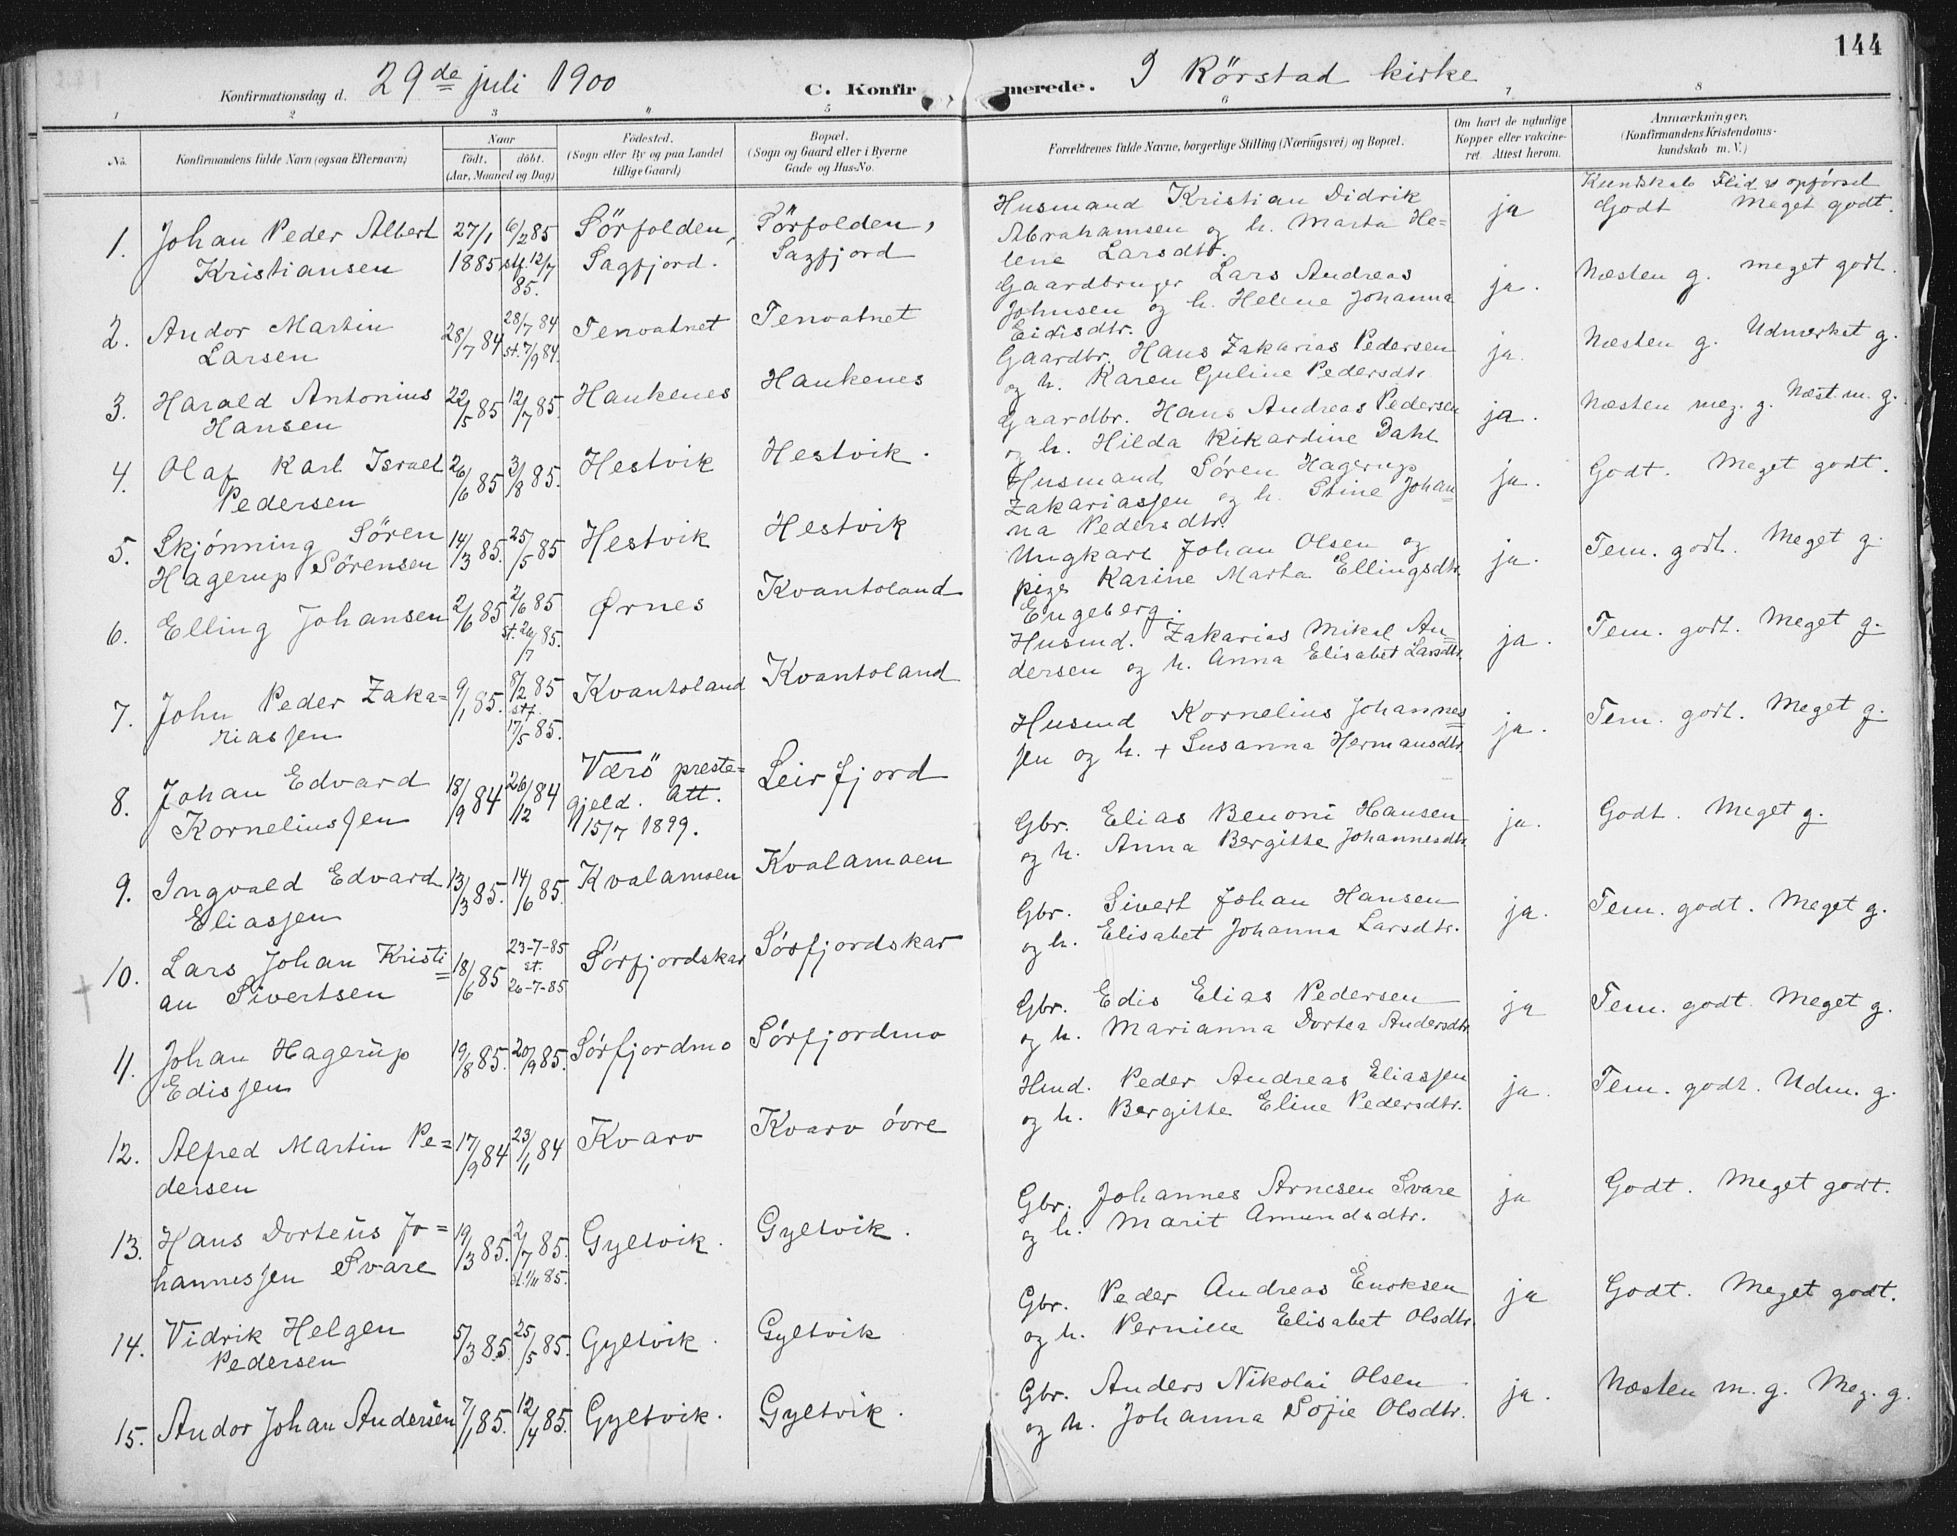 144
Konfirmationsdag d. 29de juli 1900 C. Konfirmerede. I Rörstad kirke
1 2 3 " 5 6 7 8
No. Konfirmandens fulde Navn (ogsaa Efternavn) Naar født. döbt. (Aar, Maaned og Dag) Födested. (Sogn eller By og paa Landet tillige Gaard) Bopæl. (Sogn og Gaard eller i Byerne Gade og Hus-No. Forældrenes fulde Navne, borgerlige Stilling (Næringsvei) og Bopæl. Om havt de naturlige Kopper eller vaccineret. Attest herom. Anmærkninger, (Konfirmandens Kristendomskundskab m. V.)
Kundskab Flid & opförsel
1. Johan Peder Albert 27/1 6/2 85 Sörfolden, Sörfolden, Husmand Kristian Didrik ja Godt Meget godt.
Kristiansen 1885 stf. 12/7 85. Sagfjord. Sagfjord Abrahamsen og h. Marta He=
lene Larsdtr.
2. Andor Martin 28/7 84 28/7 84 Tenvatnet Tenvatnet Gaardbruger Lars Andreas ja. Næsten g. meget godt.
Larsen st. 7/9 84. Johnsen og h. Helene Johanna
Eidisdtr.
3. Harald Antonius 22/5 85 12/7 85. Haukenes Haukenes Gaardbr. Hans Zakarias Pedersen ja. Næsten g. Udmerket g.
Hansen og h. Karen Guline Pedersdtr.
4. Olaf Karl Israel 26/6 85 3/8 85. Hestvik Hestvik. Gaardbr. Hans Andreas Pedersen ja. Næsten meg. g. Næst. m. g.
Pedersen og h. Hilda Rikardine Dahl
5. Skjønning Sören 14/3 85. 25/5 85 Hestvik Hestvik Husmand Sören Hagerup ja. Godt. Meget godt.
Hagerup Sörensen Zakariassen og h. Stine Johan=
na Pedersdtr.
6. Elling Johansen 2/6 85 2/6 85 Ørnes Kvantoland Ungkarl Johan Olsen og ja. Tem. godt. Meget g.
st. 26/7 85. pige Karine Marta Ellingsdtr.
Engeberg.
7. John Peder Zaka= 9/1 85. 8/2 85 Kvantoland Kvantoland Husmd. Zakarias Mikal An= ja. Tem. godt. Meget g.
riassen stf. 17/5 85. dersen og h. Anna Elisabet Larsdtr.
8. Johan Edvard 18/9 84 26/12 84 Værö preste= Leirfjord Husmd Kornelius Johannes= ja. Tem. godt. Meget g.
Korneliussen gjeld. Att. 15/7 1899. sen og h. + Susanna Hermansdtr.
9. Ingvald Edvard 13/3 85. 14/6 85. Kvalamoen Kvalamoen Gbr. Elias Benoni Hansen ja. Godt. Meget g.
Eliassen og h. Anna Bergitte Johannesdtr.
10. Lars Johan Kristi= 18/6 85 23-7-85 Sörfjordskar Sörfjordskar Gbr. Sivert Johan Hansen ja. Tem. godt. Meget g.
an Sivertsen st. 26-7-85 og h. Elisabet Johanna Larsdtr.
11. Johan Hagerup 19/8 85. 20/9 85. Sörfjordmo Sörfjordmo Gbr. Edis Elias Pedersen ja Tem. godt. Meget g.
Edissen og h. Marianna Dortea Andersdtr.
12. Alfred Martin Pe= 17/9 84 23/11 84 Kvarv Kvarv övre Hmd. Peder Andreas Eliassen ja. Tem. godt. Udm. g.
dersen og h. Bergitte Eline Pedersdtr.
13. Hans Dorteüs Jo= 19/3 85. 2/7 85. Gyltvik. Gyltvik. Gbr. Johannes Arnesen Svare ja Godt. Meget godt.
hannessen Svare st. 1/11 85. og h. Marit Amundsdtr.
14. Vidrik Helgen 5/3 85. 25/5 85. Gyltvik. Gyltvik Gbr. Peder Andreas Enoksen ja Godt. Meget godt.
Pedersen og h. Pernille Elisabet Olsdtr.
15. Andor Johan Andersen 7/1 85. 12/4 85. Gyltvik. Gyltvik. Gbr. Anders Nikolai Olsen ja. Næsten m. g. Meg. g.
og h. Johanna Sofie Olsdtr.